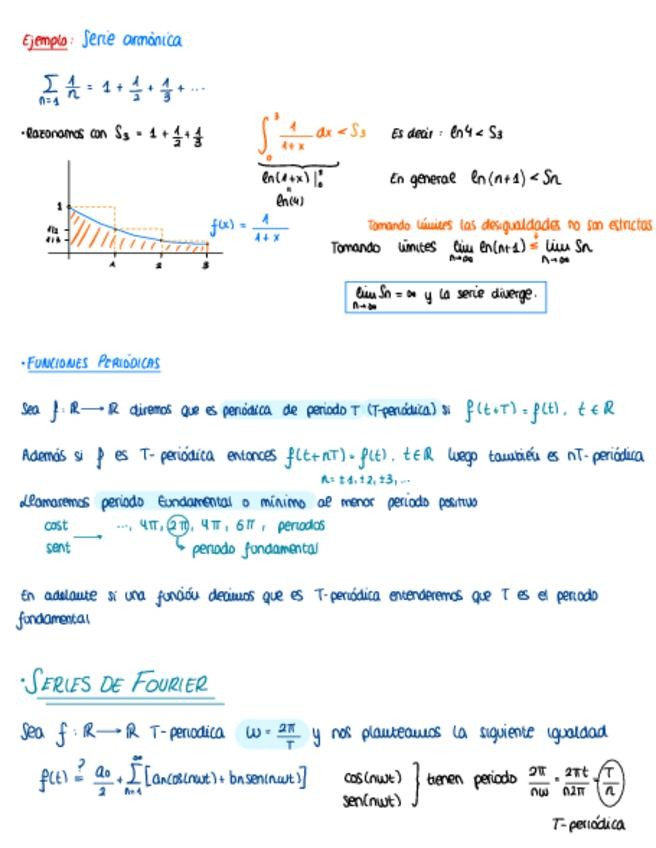 Ejemplo: Serie armónica
∑ n=1 1/n = 1 + 1/2 + 1/3 + ...
·Razonamos con S₃ = 1 + 1/2 + 1/3
∫₀³ 1/(1+x) dx < S₃
Es decir: ln4 < S₃
ln(1+x) |₀³
"
ln(4)
En general ln(n+1) < Sn
1
1/2
1/3
1 2 3
f(x) = 1/(1+x)
Tomando límites las desigualdades no son estrictas
Tomando límites lim n→∞ ln(n+1) ≤ lim n→∞ Sn
lim n→∞ Sn = ∞ y la serie diverge.
·FUNCIONES PERIÓDICAS
Sea f: ℝ → ℝ diremos que es periódica de periodo T (T-periódica) si f(t+T) = f(t), t ∈ ℝ
Además si f es T-periódica entonces f(t+nT) = f(t), t ∈ ℝ luego también es nT-periódica
n = ±1, ±2, ±3, ...
Llamaremos periodo fundamental o mínimo al menor periodo positivo
cost
sent → ..., 4π, 2π, 4π, 6π, periodos
periodo fundamental
En adelante si una función decimos que es T-periódica entenderemos que T es el periodo
fundamental
·SERIES DE FOURIER
Sea f: ℝ → ℝ T-periodica ω = 2π/T y nos planteamos la siguiente igualdad
f(t) =? a₀/2 + ∑ n=1 ∞ [an cos(nωt) + bn sen(nωt)]
cos(nωt)
sen(nωt) ] tienen periodo 2π/nω = 2πt/n2π = T/n
T-periódica